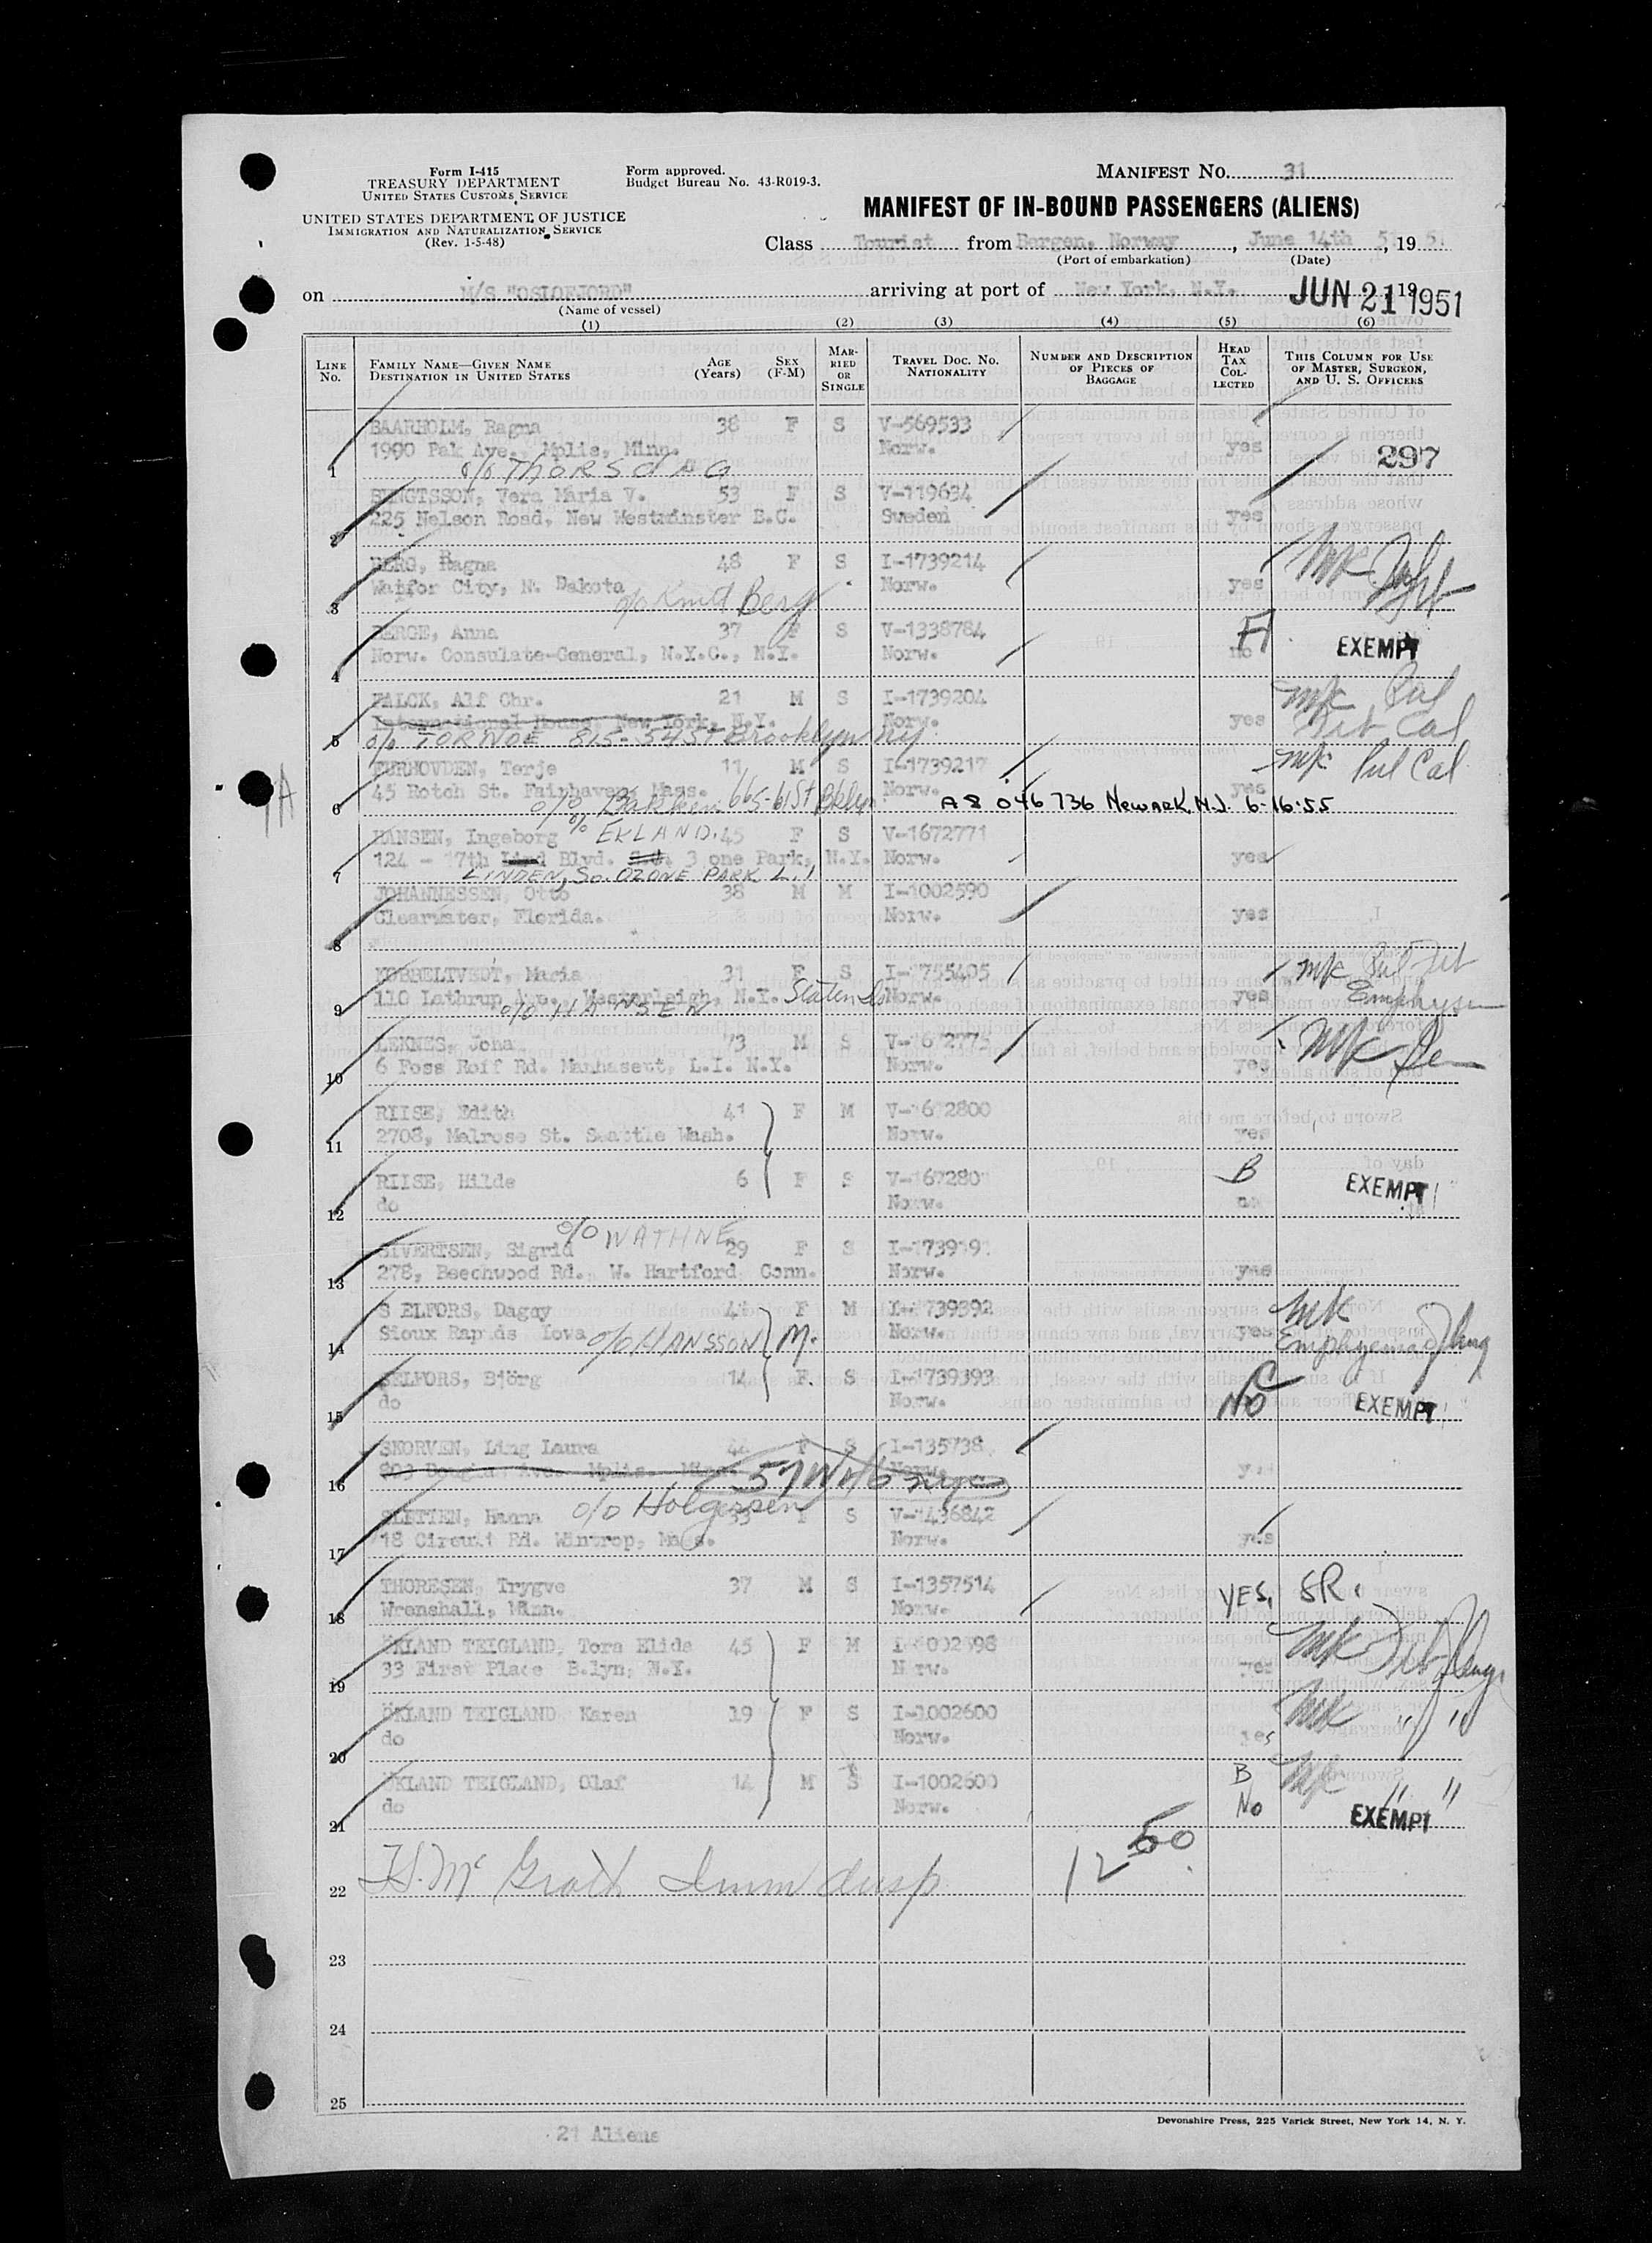 Form I-415
TREASURY DEPARTMENT
UNITED STATES CUSTOMS SERVICE
UNITED STATES DEPARTMENT OF JUSTICE
IMMIGRATION AND NATURALIZATION SERVICE
(Rev. 1-5-48)
Form approved.
Budget Bureau No. 43-R019-3.
MANIFEST NO. 31
MANIFEST OF IN-BOUND PASSENGERS (ALIENS)
Class Tourist from Bergen, Norway, June 14th 51, 19 51
(Port of embarkation) (Date)
on M/S "OSLOFJORD" arriving at port of New York, N.Y. JUN 21 1951 19
(Name of vessel)
(1) (2) (3) (4) (5) (6)
LINE NO. FAMILY NAME—GIVEN NAME DESTINATION IN UNITED STATES AGE (Years) SEX (F-M) MARRIED OR SINGLE TRAVEL DOC. NO. NATIONALITY NUMBER AND DESCRIPTION OF PIECES OF BAGGAGE HEAD TAX COLLECTED THIS COLUMN FOR USE OF MASTER, SURGEON, AND U. S. OFFICERS
BAARHOLM, Ragna 38 F S V-569533
1900 Pak Ave., Mplis, Minn. Norw. yes 297
1 c/o THORSDAG
BENGTSSON, Vera Maria V. 53 F S V-119634
225 Nelson Road, New Westminster B.C. Sweden yes
2
BERG, Ragna 48 F S I-1739214
Watfor City, N. Dakota Norw. yes
3 c/o Knut Berg
BERGE, Anna 37 F S V-1338784
Norw. Consulate-General, N.Y.C., N.Y. Norw. no EXEMPT
4
FALCK, Alf Chr. 21 M S I-1739204
International House, New York, N.Y. Norw. yes
5 c/o TORNOE 815-54 ST Brooklyn NY
FURHOVDEN, Terje 11 M S I-1739217 Pul Cal
45 Rotch St. Fairhaven, Mass. Norw. yes
6 c/o Bakken 665-61 St Bklyn A8 046 736 NEWARK, N.J. 6-16-55
HANSEN, Ingeborg c/o EKLAND. 45 F S V-1672771
124 - 17th Blvd. 3 one Park, N.Y. Norw. yes
7 LINDEN, So. OZONE PARK L.I
JOHANNESSEN, Otto 38 M M I-1002590
Clearwater, Florida. Norw. yes
8
KOBBELTVEDT, Maria 31 F S I-1755405
110 Lathrup Ave., Westerleigh, N.Y. Staten Is Norw. yes
9 c/o HANSEN
LEKNES, Joha 73 M S
6 Foss Roif Rd. Manhasett, L.I. N.Y. Norw. yes
10
RIISE, Edith 41 F M V-1672800
2708, Melrose St. Seattle Wash. Norw. yes
11
RIISE, Hilde 6 F S B
do Norw. EXEMPT
12
c/o WATHNE
SIVERTSEN, Sigrid 29 F S
278, Beechwood Rd. W. Hartford, Conn. Norw. yes
13
SELFORS, Dagny F M I-1739392
Sioux Rapids Iowa c/o HANSSON M. Norw. yes
14
SELFORS, Björg 14 F S I-1739393
do Norw. No EXEMPT
15
SKORVEN, Ling Laura F S I-135738
803 Douglas Ave. Mplis. Minn. 57 W Norw.
16
c/o Holgersen
SLETTEN, Hanna 33 F S V-1436842
18 Circuit Rd. Wintrop, Mass. Norw. yes
17
THORESEN, Trygve 37 M S I-1357514
Wrenshall, Minn. Norw. YES, SR.
18
ÖKLAND TEIGLAND, Tora Elida 45 F M
33 First Place B.lyn, N.Y. Norw. yes
19
ÖKLAND TEIGLAND Karen 19 F S I-1002600
do Norw. yes " "
20
ÖKLAND TEIGLAND, Olaf 14 M S I-1002600 B " "
do Norw. No EXEMPT
21
22 McGrath Imm Insp 12 50
23
24
25
Devonshire Press, 225 Varick Street, New York 14, N. Y.
21 Aliens